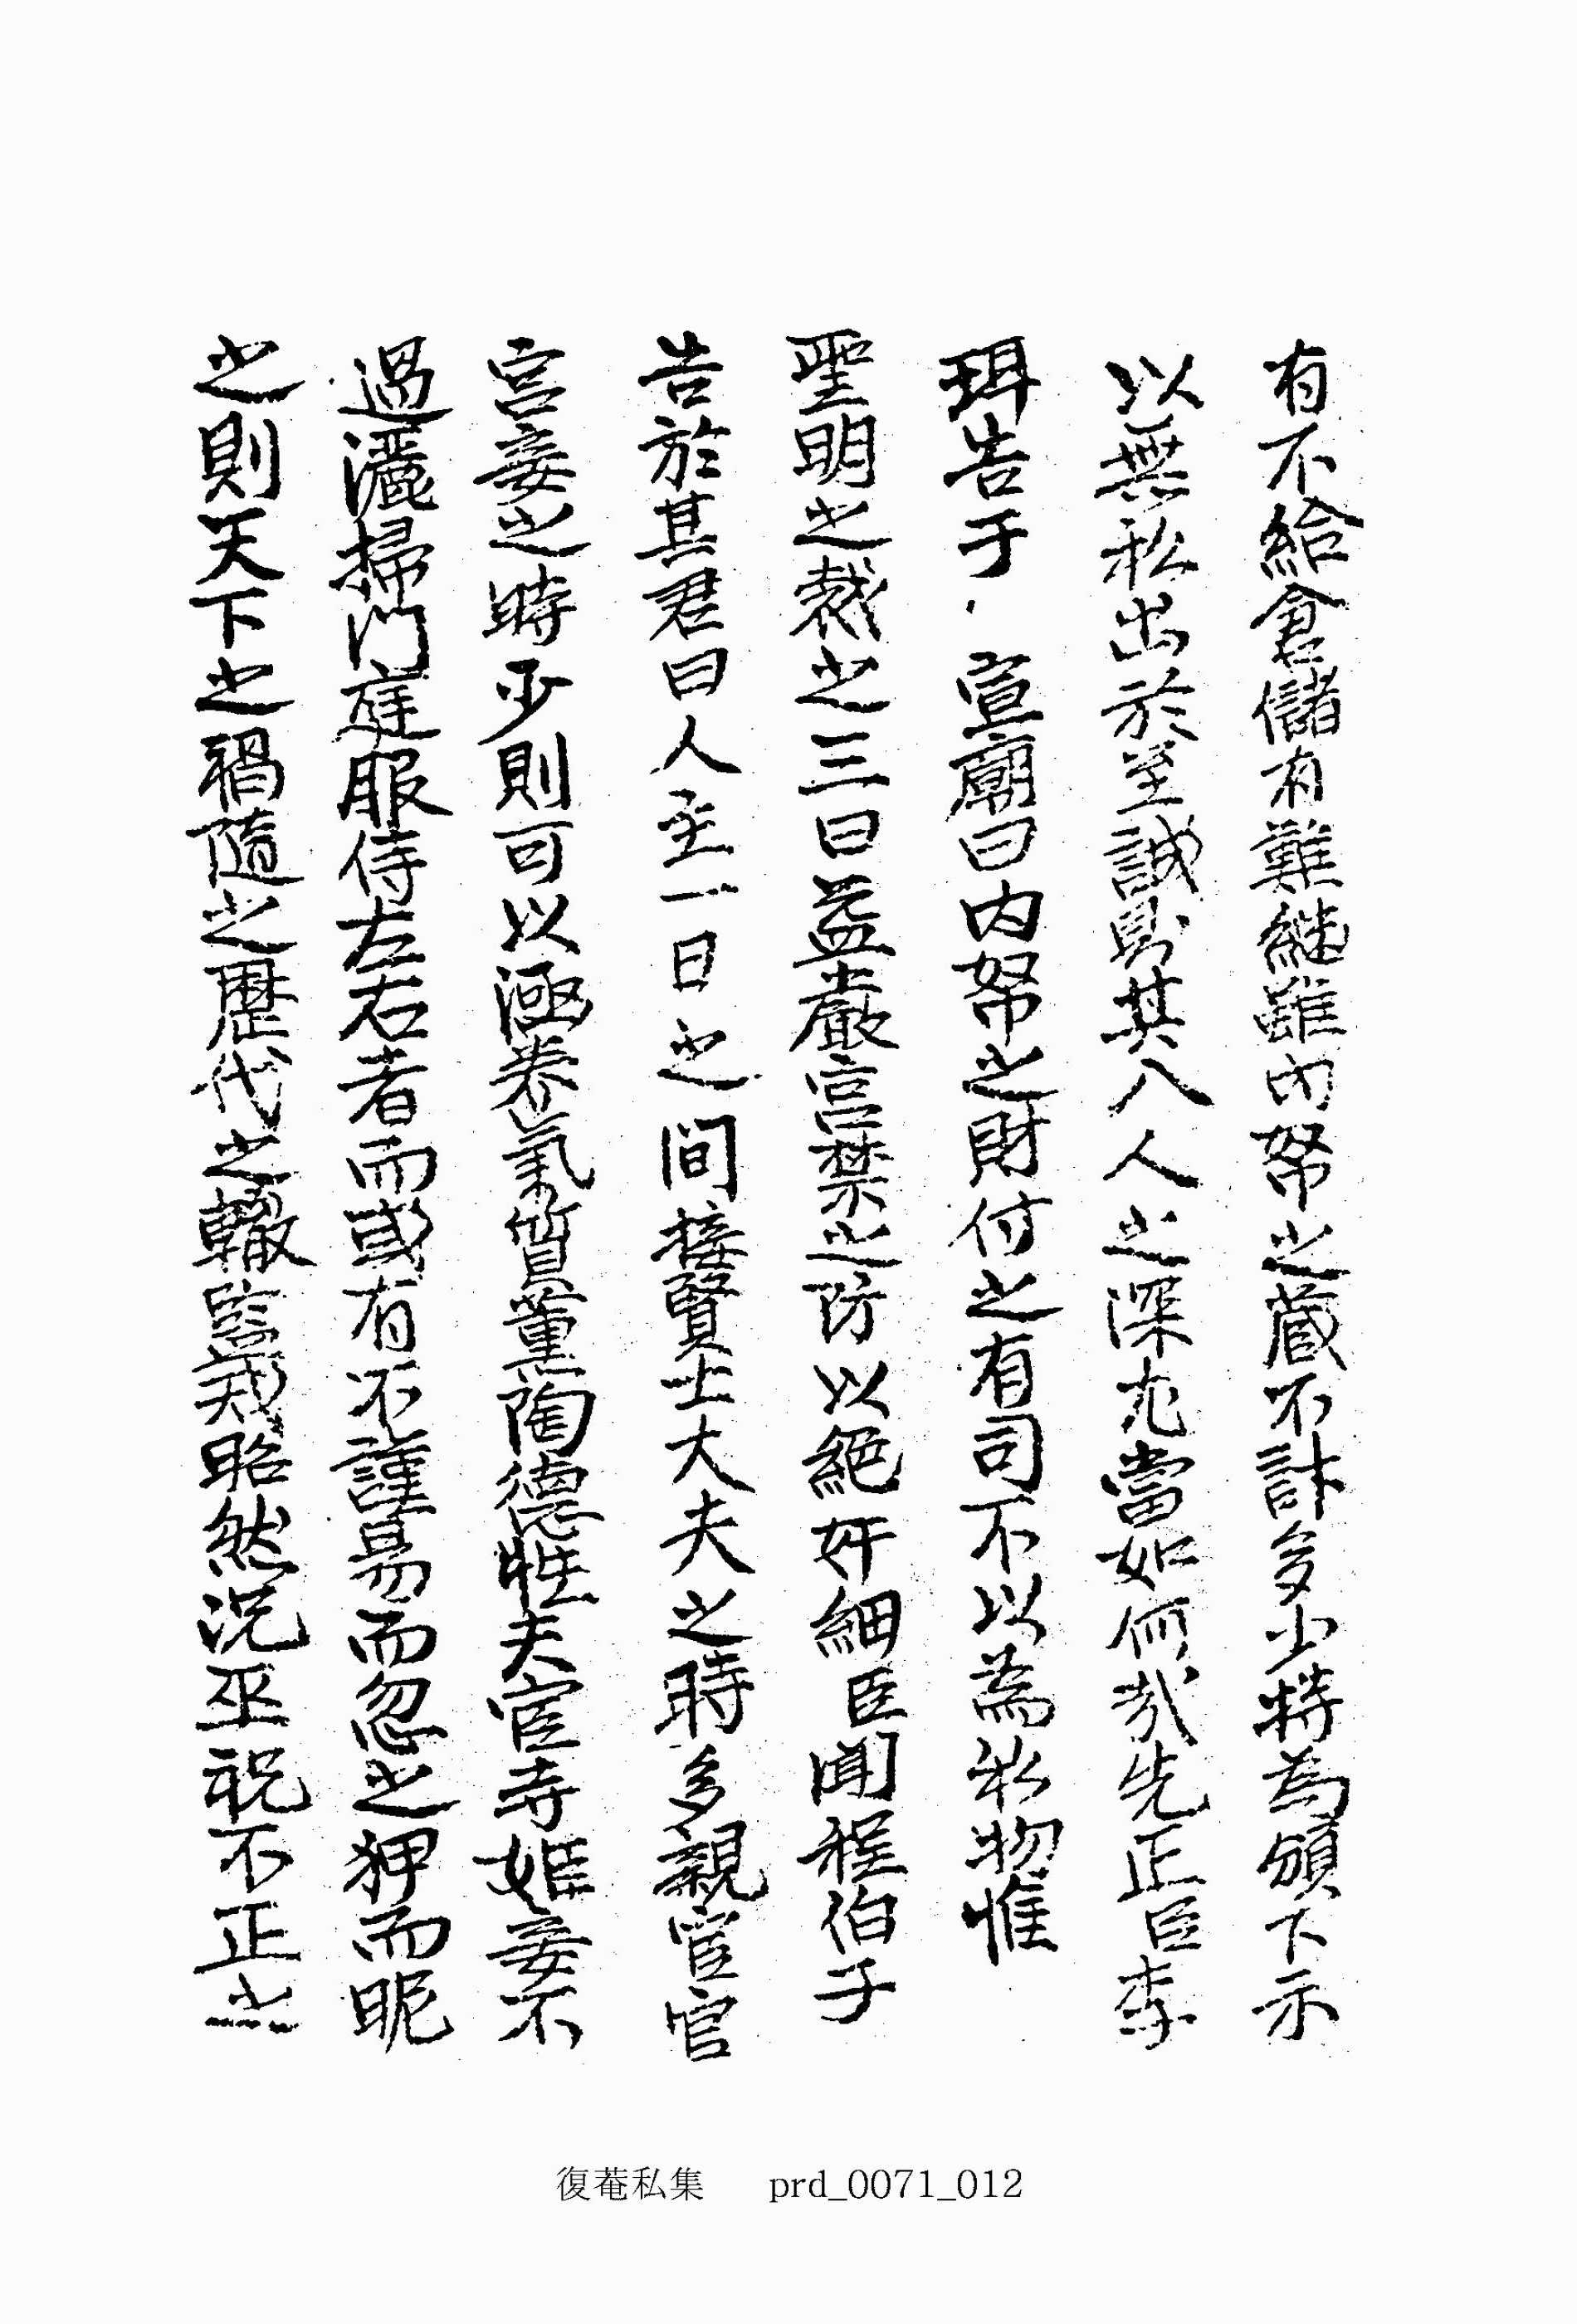 有不給倉儲有難継雖內帑之蔵不計多少特為頒下示
以無私出於至誠則其入人之深尤當如何哉先正臣李
珥告于 宣廟曰內帑之財付之有司不以為私物惟
聖明之裁之三曰益嚴宮禁之防以絕奸細臣聞程伯子
告於其君曰人主一日之間接賢士大夫之時多親宦官
宮妾之時少則可以涵養氣質薰陶德性夫宦寺姬妾不
過灑掃門庭服侍左右者而或有不謹易而忽之狎而昵
之則天下之禍隨之歷代之轍鑑戒昭然況巫祝不正之
復菴私集 prd_0071_012